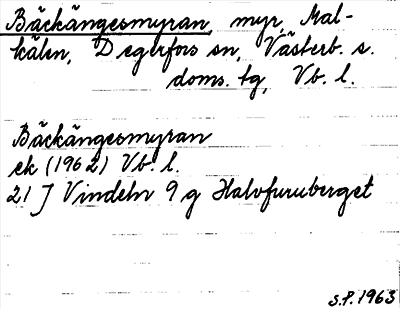 Bäckängesmyran, myr, Mal-
kålen, Degerfors sn, Västerb. s.
doms. tg, Vb. l.
Bäckängesmyran
ek (1962) Vb. l.
21 J Vindeln 9 g Halvfuruberget
S.P. 1963